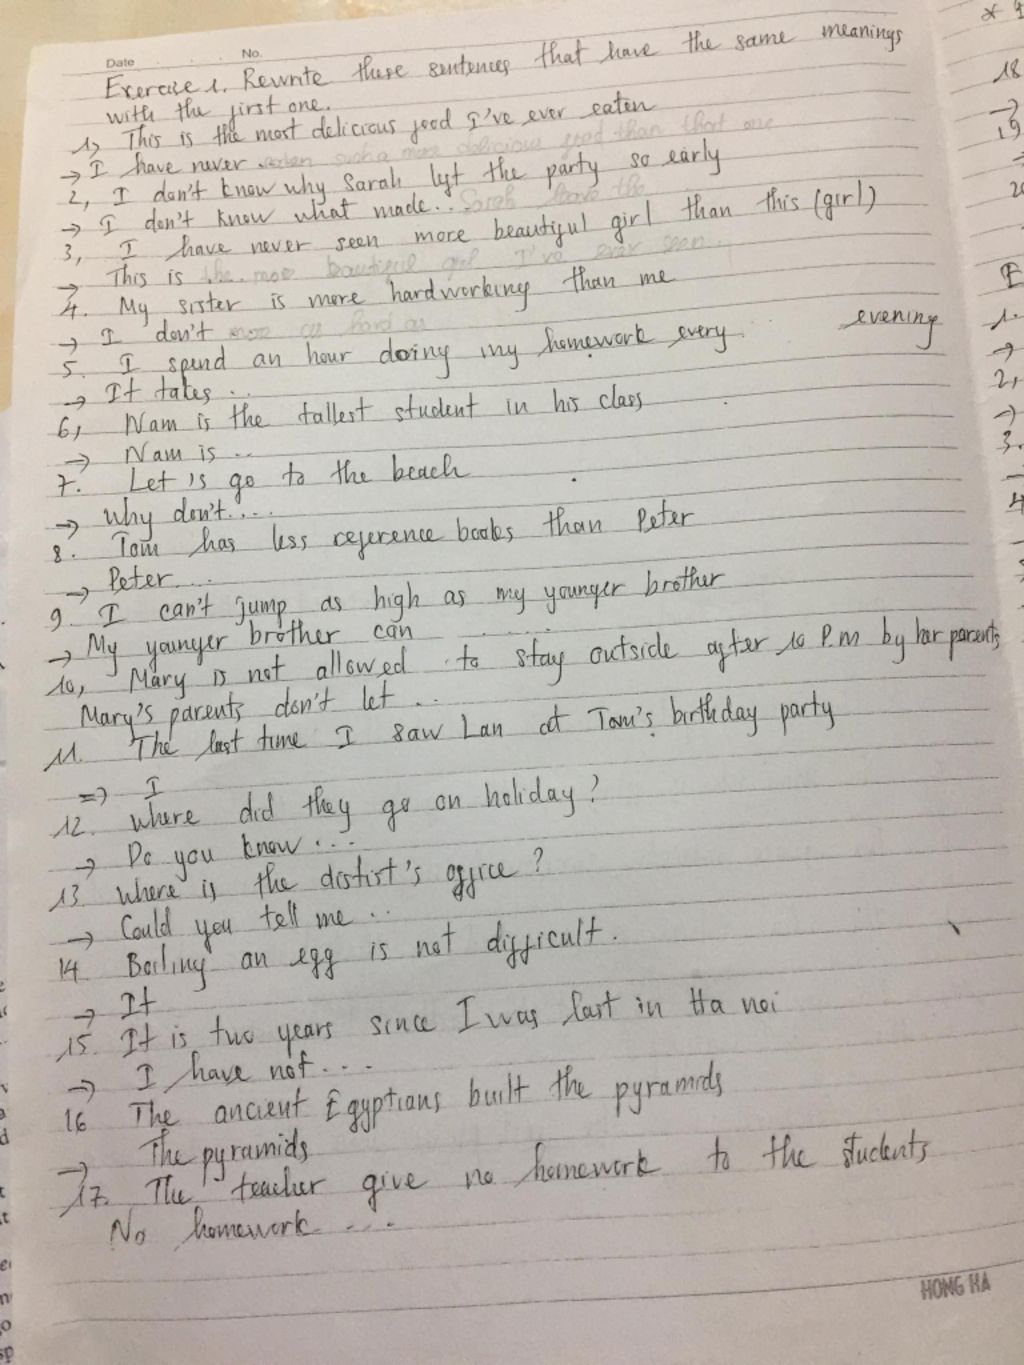 Date No.
Exercise 1. Rewrite these sentences that have the same meanings
with the first one.
1, This is the most delicious food I've ever eaten
→ I have never eaten such a more delicious food than that one
2, I don't know why Sarah left the party so early
→ I don't know what made... Sarah leave the
3, I have never seen more beautiful girl than this (girl)
→ This is the most beautiful girl I've ever seen.
4. My sister is more hardworking than me
→ I don't as hard as
5. I spend an hour doing my homework every evening
→ It takes...
6, Nam is the tallest student in his class
→ Nam is...
7. Let's go to the beach
→ Why don't....
8. Tom has less reference books than Peter
→ Peter....
9. I can't jump as high as my younger brother
→ My younger brother can ......
10, Mary is not allowed to stay outside after 10 P.m by her parents
Mary's parents don't let ..
11. The last time I saw Lan at Tom's birthday party
=> I
12. Where did they go on holiday?
→ Do you know...
13. Where is the distist's office?
→ Could you tell me...
14 Boiling an egg is not difficult.
→ It
15. It is two years since I was last in Ha noi
→ I have not....
16 The ancient Egyptians built the pyramids
→ The pyramids
17. The teacher give no homework to the students
No homework ....
HONG HA
* 
18
→
19
20
E
1.
→
2,
→
3.
4